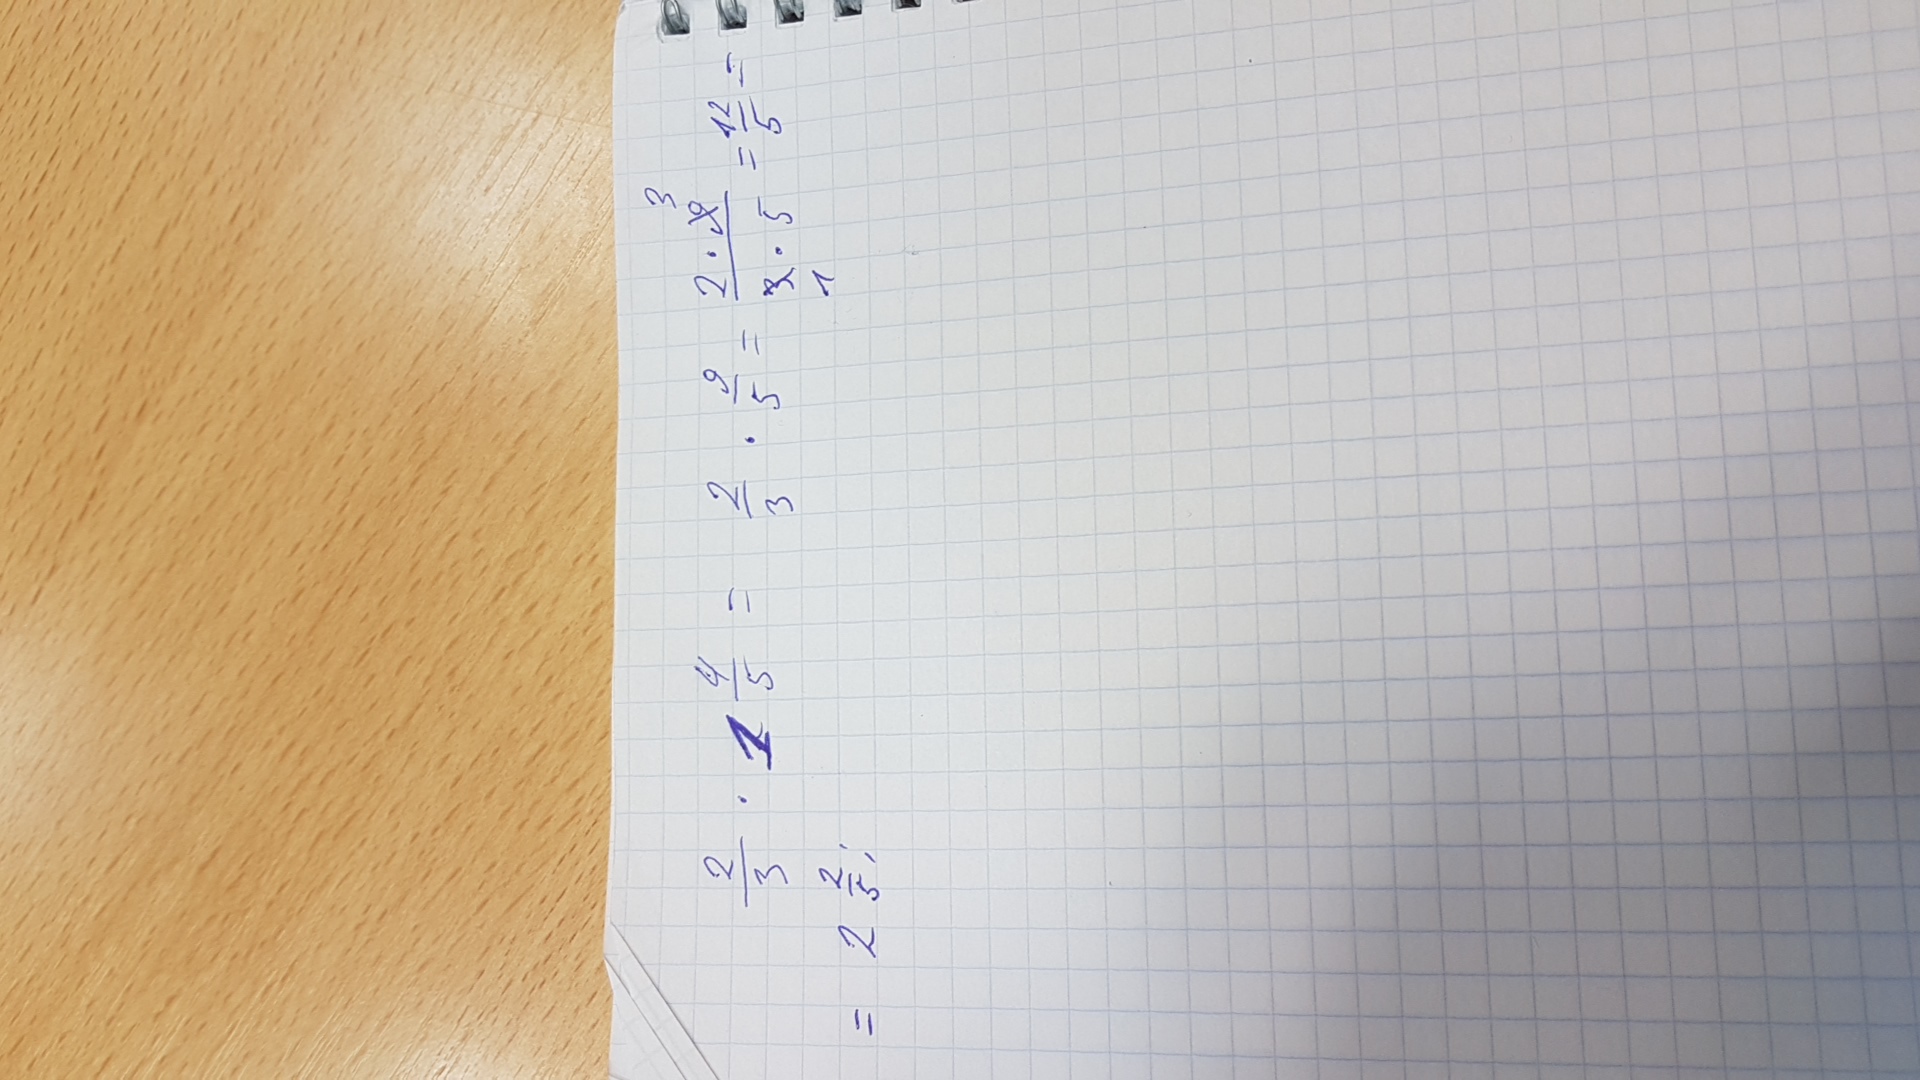 2/3 · 1 4/5 = 2/3 · 9/5 = 2 · 9 3 / 3 1 · 5 = 12/5 =
= 2 2/5;